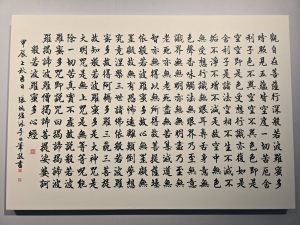 觀自在菩薩行深般若波羅蜜多
時照見五蘊皆空度一切苦厄舍
利子色不異空空不異色色即是
空空即是色受想行識亦復如是
舍利子是諸法空相不生不滅不
垢不淨不增不減是故空中無色
無受想行識無眼耳鼻舌身意無
色聲香味觸法無眼界乃至無意
識界無無明亦無無明盡乃至無
老死亦無老死盡無苦集滅道無
智亦無得以無所得故菩提薩埵
依般若波羅蜜多故心無罣礙無
罣礙故無有恐怖遠離顛倒夢想
究竟涅槃三世諸佛依般若波羅
蜜多故得阿耨多羅三藐三菩提
故知般若波羅蜜多是大神咒是
大明咒是無上咒是無等等咒能
除一切苦真實不虛故說般若波
羅蜜多咒即說咒曰揭諦揭諦波
羅揭諦波羅僧揭諦菩提娑婆訶
般若波羅蜜多心經
甲辰上秋吉日 張 書